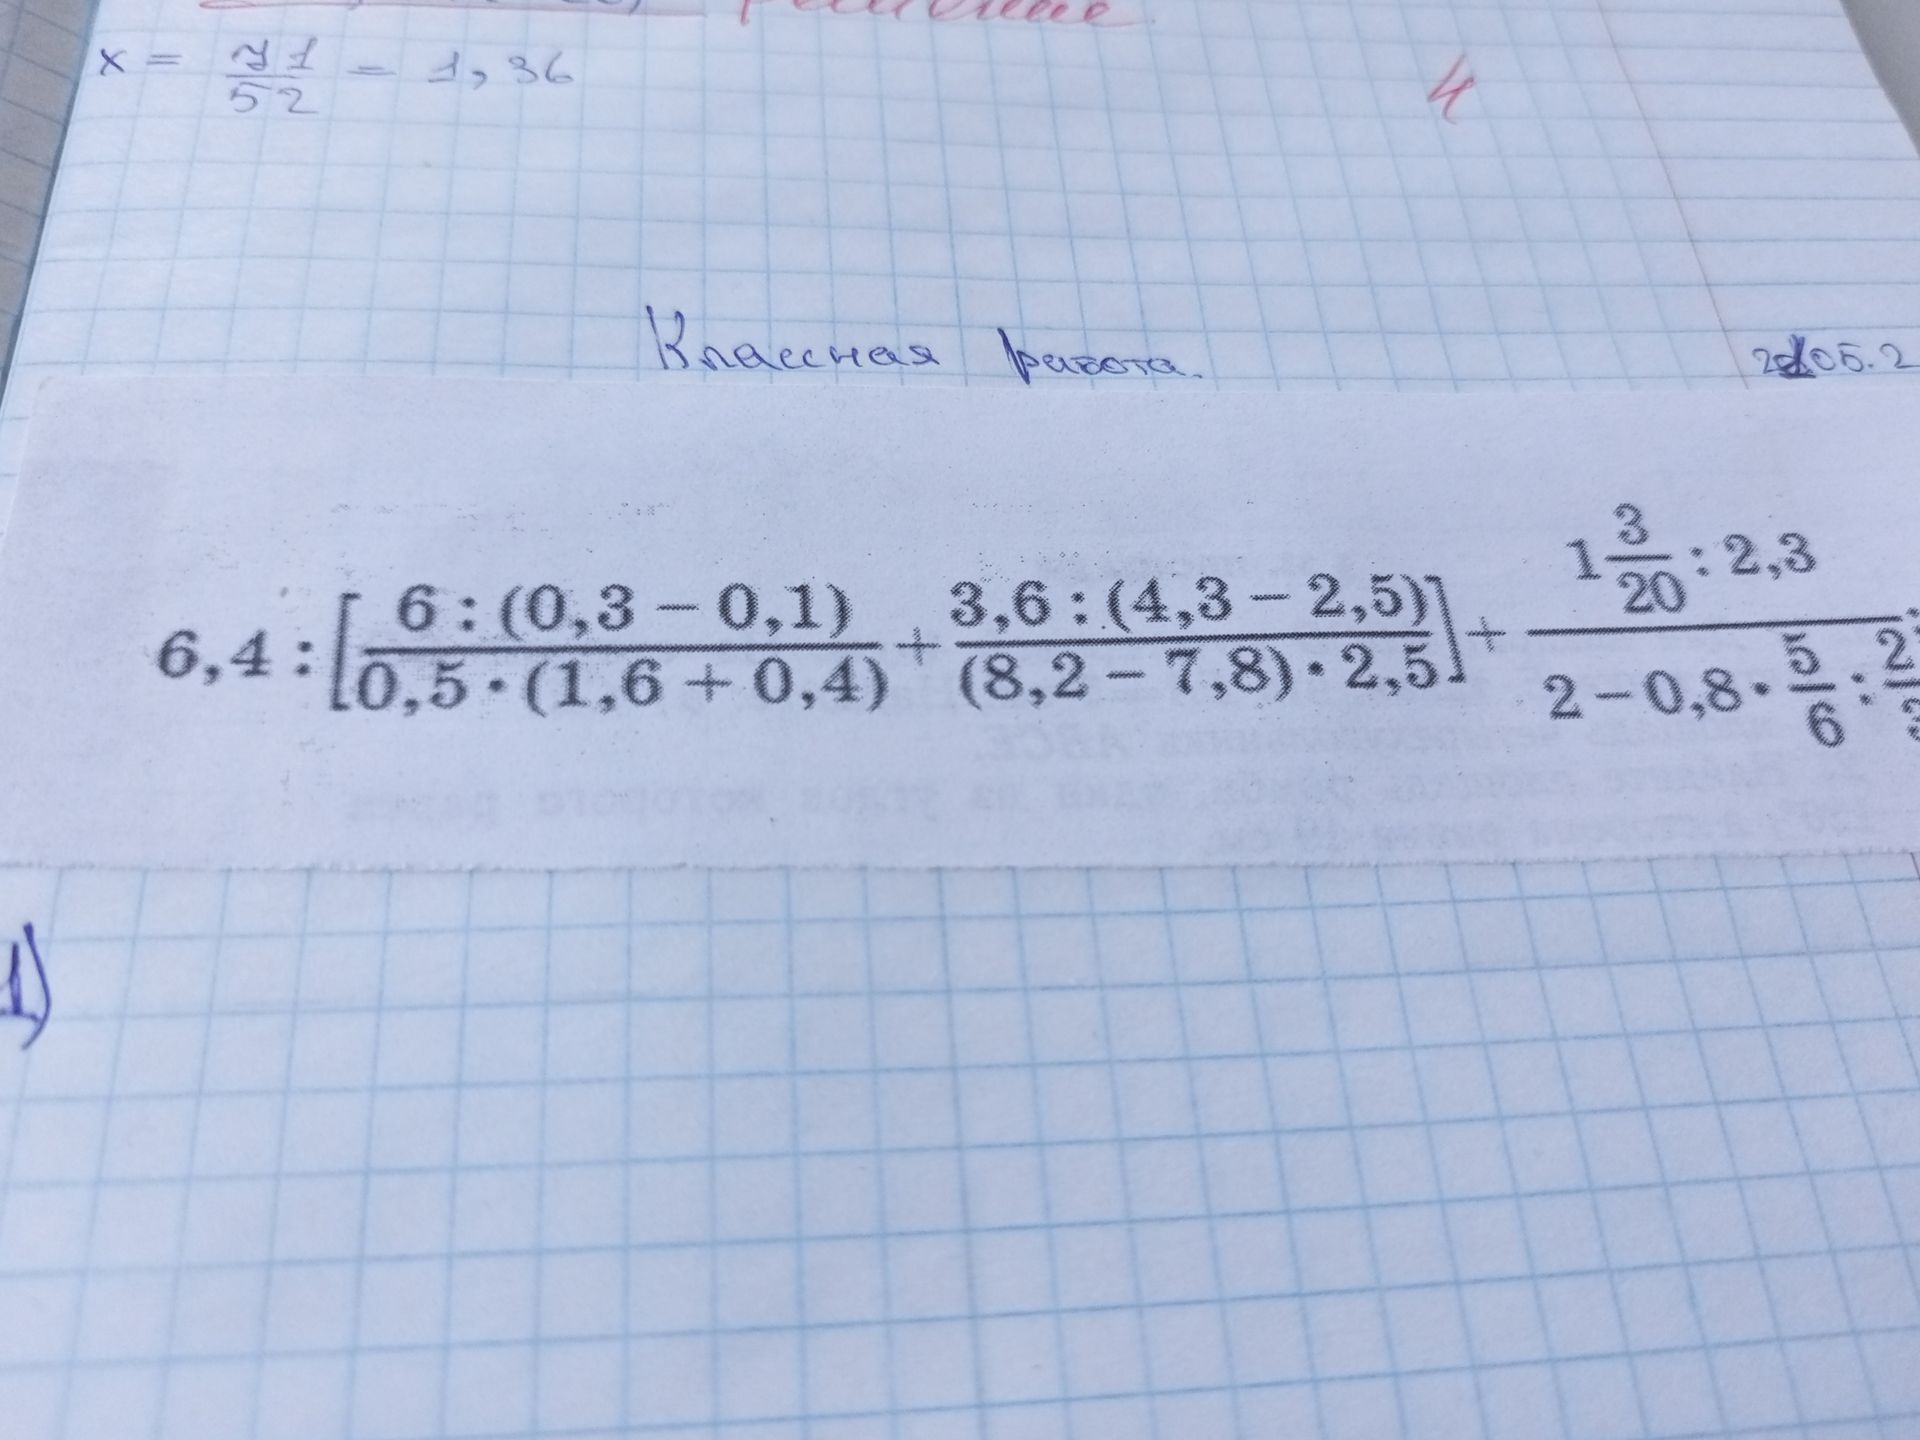 x = 71/52 = 1,36
4
Классная работа. 
6,4 : [ 6 : (0,3 − 0,1) / 0,5 · (1,6 + 0,4) + 3,6 : (4,3 − 2,5) / (8,2 − 7,8) · 2,5 ] + 1 3/20 : 2,3 / 2 − 0,8 · 5/6 : 2/3
1)